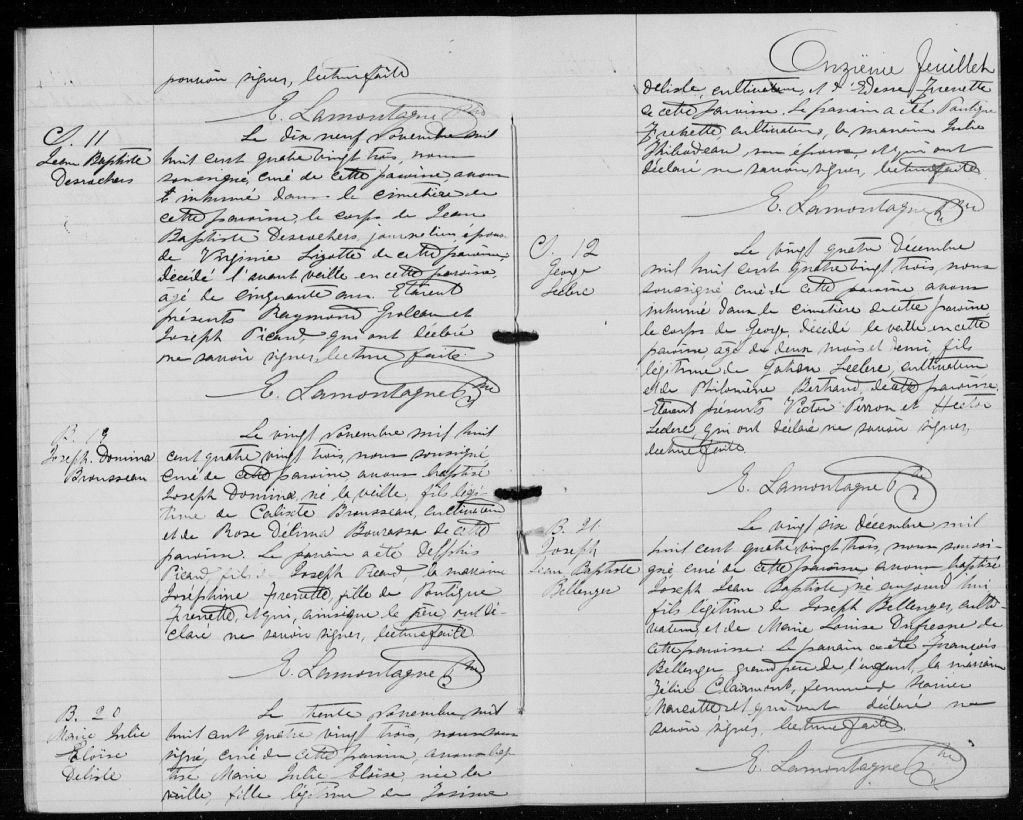 pouvoir signer, lecture faite
E. Lamontagne Ptre
S. 11
Jean Baptiste
Desrochers
Le dix neuf Novembre mil
huit cent quatre vingt trois, nous
soussigné, curé de cette paroisse avons
inhumé dans le cimetière de
cette paroisse le corps de Jean
Baptiste Desrochers, journalier, époux
de Virginie Lizotte de cette paroisse,
décédé l'avant veille en cette paroisse,
âgé de cinquante ans. Etaient
présents Raymond Groleau et
Joseph Picard, qui ont déclaré
ne savoir signer, lecture faite.
E. Lamontagne Ptre
B. 19
Joseph Domina
Brousseau
Le vingt Novembre mil huit
cent quatre vingt trois, nous soussigné
curé de cette paroisse avons baptisé
Joseph Domina, né la veille, fils légi-
time de Calixte Brousseau, cultivateur
et de Rose Délima Bourassa de cette
paroisse. Le parrain a été Delphis
Picard, fils de Joseph Picard, la marraine
Joséphine Frenette, fille de Pontique
Frenette, et qui, ainsi que le père, ont dé-
claré ne savoir signer, lecture faite
E. Lamontagne Ptre
B. 20
Marie Julie
Eloïse
Delisle
Le trente Novembre mil
huit cent quatre vingt trois, nous sous
signé, curé de cette paroisse, avons bap
tisé Marie Julie Eloïse, née la
veille, fille légitime de Josime
Onzième feuillet
Delisle, cultivateur, et d'Edesse Frenette
de cette paroisse. Le parrain a été Pontique
Frenette, cultivateur, la marraine Julie
Thibodeau son épouse et qui ont
déclaré ne savoir signer, lecture faite.
E. Lamontagne Ptre
S. 12
George
Leclerc
Le vingt quatre Décembre
mil huit cent quatre vingt trois, nous
soussigné curé de cette paroisse avons
inhumé dans le cimetière de cette paroisse
le corps de George, décédé la veille en cette
paroisse, âgé de deux mois et demi, fils
légitime de Gatien Leclerc, cultivateur
et de Philomène Bertrand, de cette paroisse.
Etaient présents Victor Perron et Hector
Leclerc qui ont déclaré ne savoir signer,
lecture faite.
E. Lamontagne Ptre
B. 21.
Joseph
Jean Baptiste
Bellenger
Le vingt six décembre mil
huit cent quatre vingt trois, nous soussi-
gné curé de cette paroisse avons baptisé
Joseph Jean Baptiste, né aujourd'hui
fils légitime de Joseph Bellenger, culti-
vateur, et de Marie Louise Dufresne de
cette paroisse. Le parrain a été François
Bellenger grand père de l'enfant, la marraine
Zélie Clairmont, femme de Xavier
Marcotte et qui ont déclaré ne
savoir signer, lecture faite.
E. Lamontagne Ptre